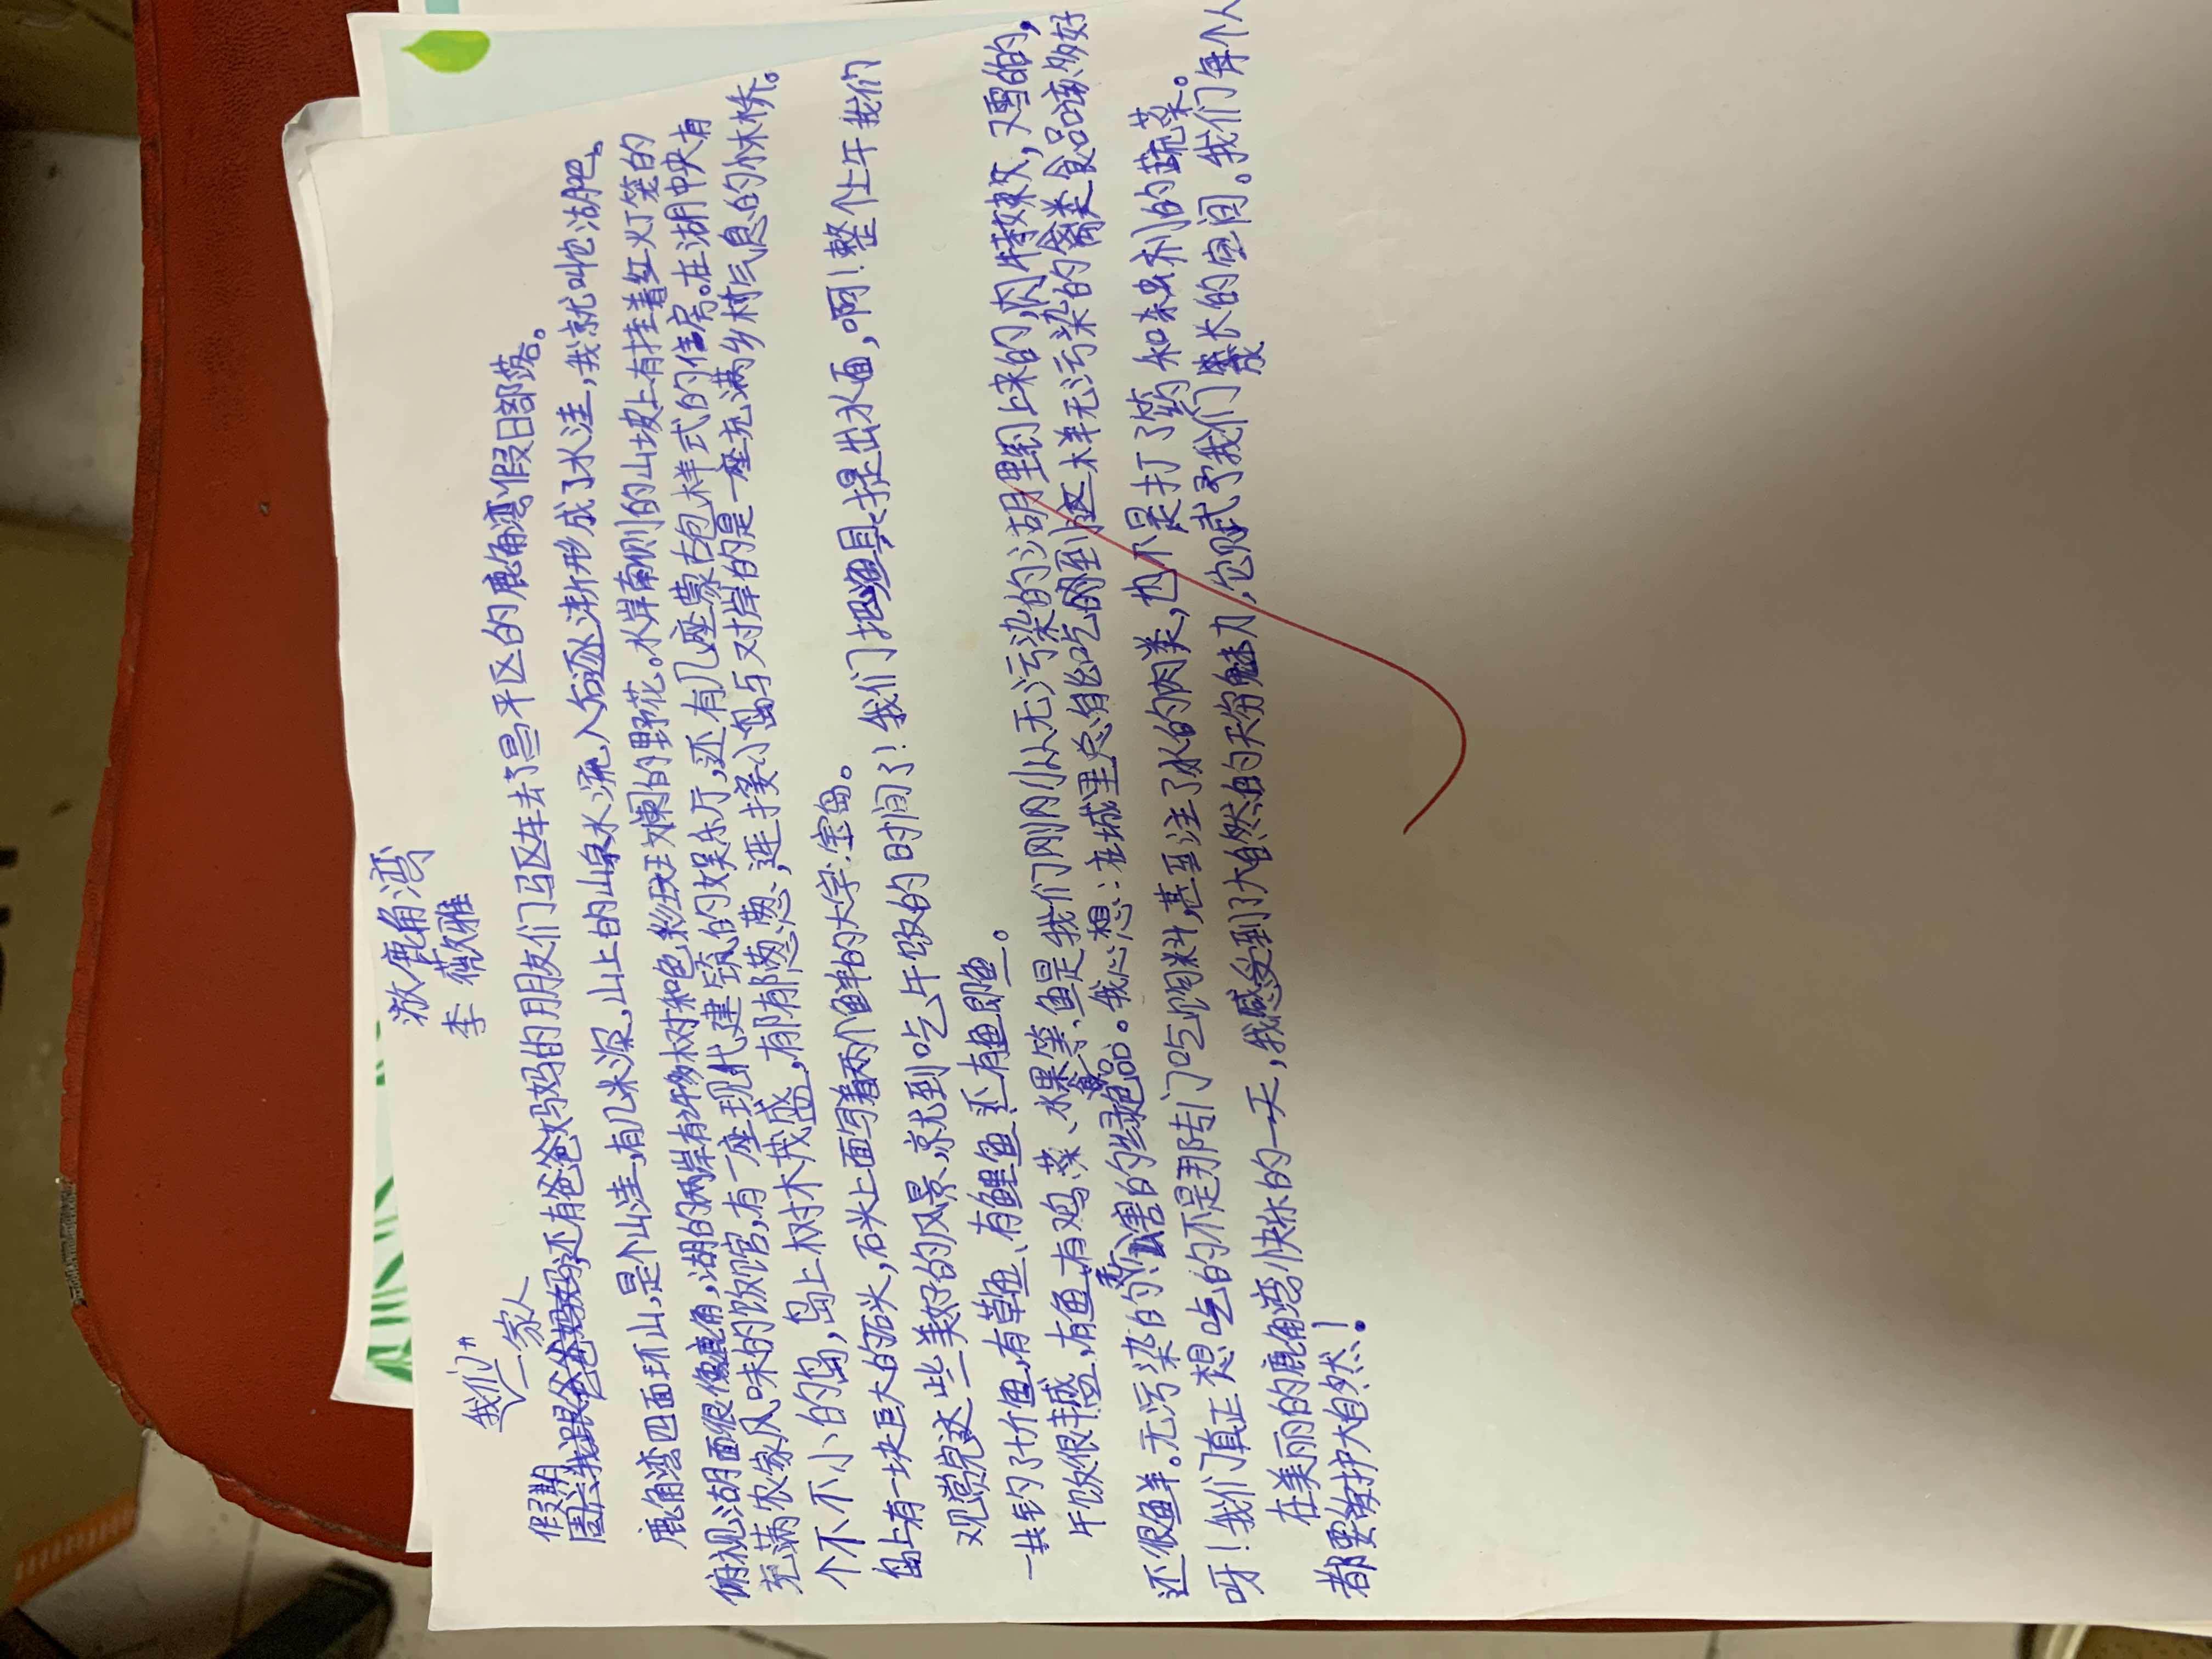 游鹿角湾
李薇雅
我们一家人
假期
周六我跟爸爸妈妈还有爸爸妈妈的朋友们马区车去了昌平区的鹿角湾假日部落。
鹿角湾四面环山,是个山洼,有几米深,山上的山泉水流入后逐渐形成了水洼,我就叫它湖吧。
俯视湖面很像鹿角,湖的两岸有许多树和色彩斑斓的野花。水岸南侧的山坡上有挂着红灯笼的
充满农家风味的饭馆,有一座现代建筑的娱乐厅,还有几座蒙古包样式的住房。在湖中央有
个不大不小的岛,岛上树木茂盛,郁郁葱葱,连接小岛与对岸的是一座充满乡村气息的小木桥。
岛上有一块巨大的石头,石头上面写着两个鱼羊的大字:宝岛。
观赏完这些美好的风景,就到吃午饭的时间了!我们把渔具提出水面,啊!整个上午我们
一共钓了十斤鱼,有草鱼、有鲤鱼、还有鱼即鱼。
午饭很丰盛,有鱼,有鸡、菜、水果等、鱼是我们刚刚从无污染的湖里钓上来的,肉特嫩,又雪白,
还很鱼羊。无污染的无公害的绿色食品。我心想:在城里总能吃的到这样无污染的禽类食品该多好
呀!我们真正想吃的不是那专门吃饲料,甚至注了水的肉类,也不是打了药和杀虫剂的蔬菜。
在美丽的鹿角湾愉快的一天,我感受到了大自然的天然魅力,它赋予了我们成长的空间。我们每个人
都要爱护大自然!